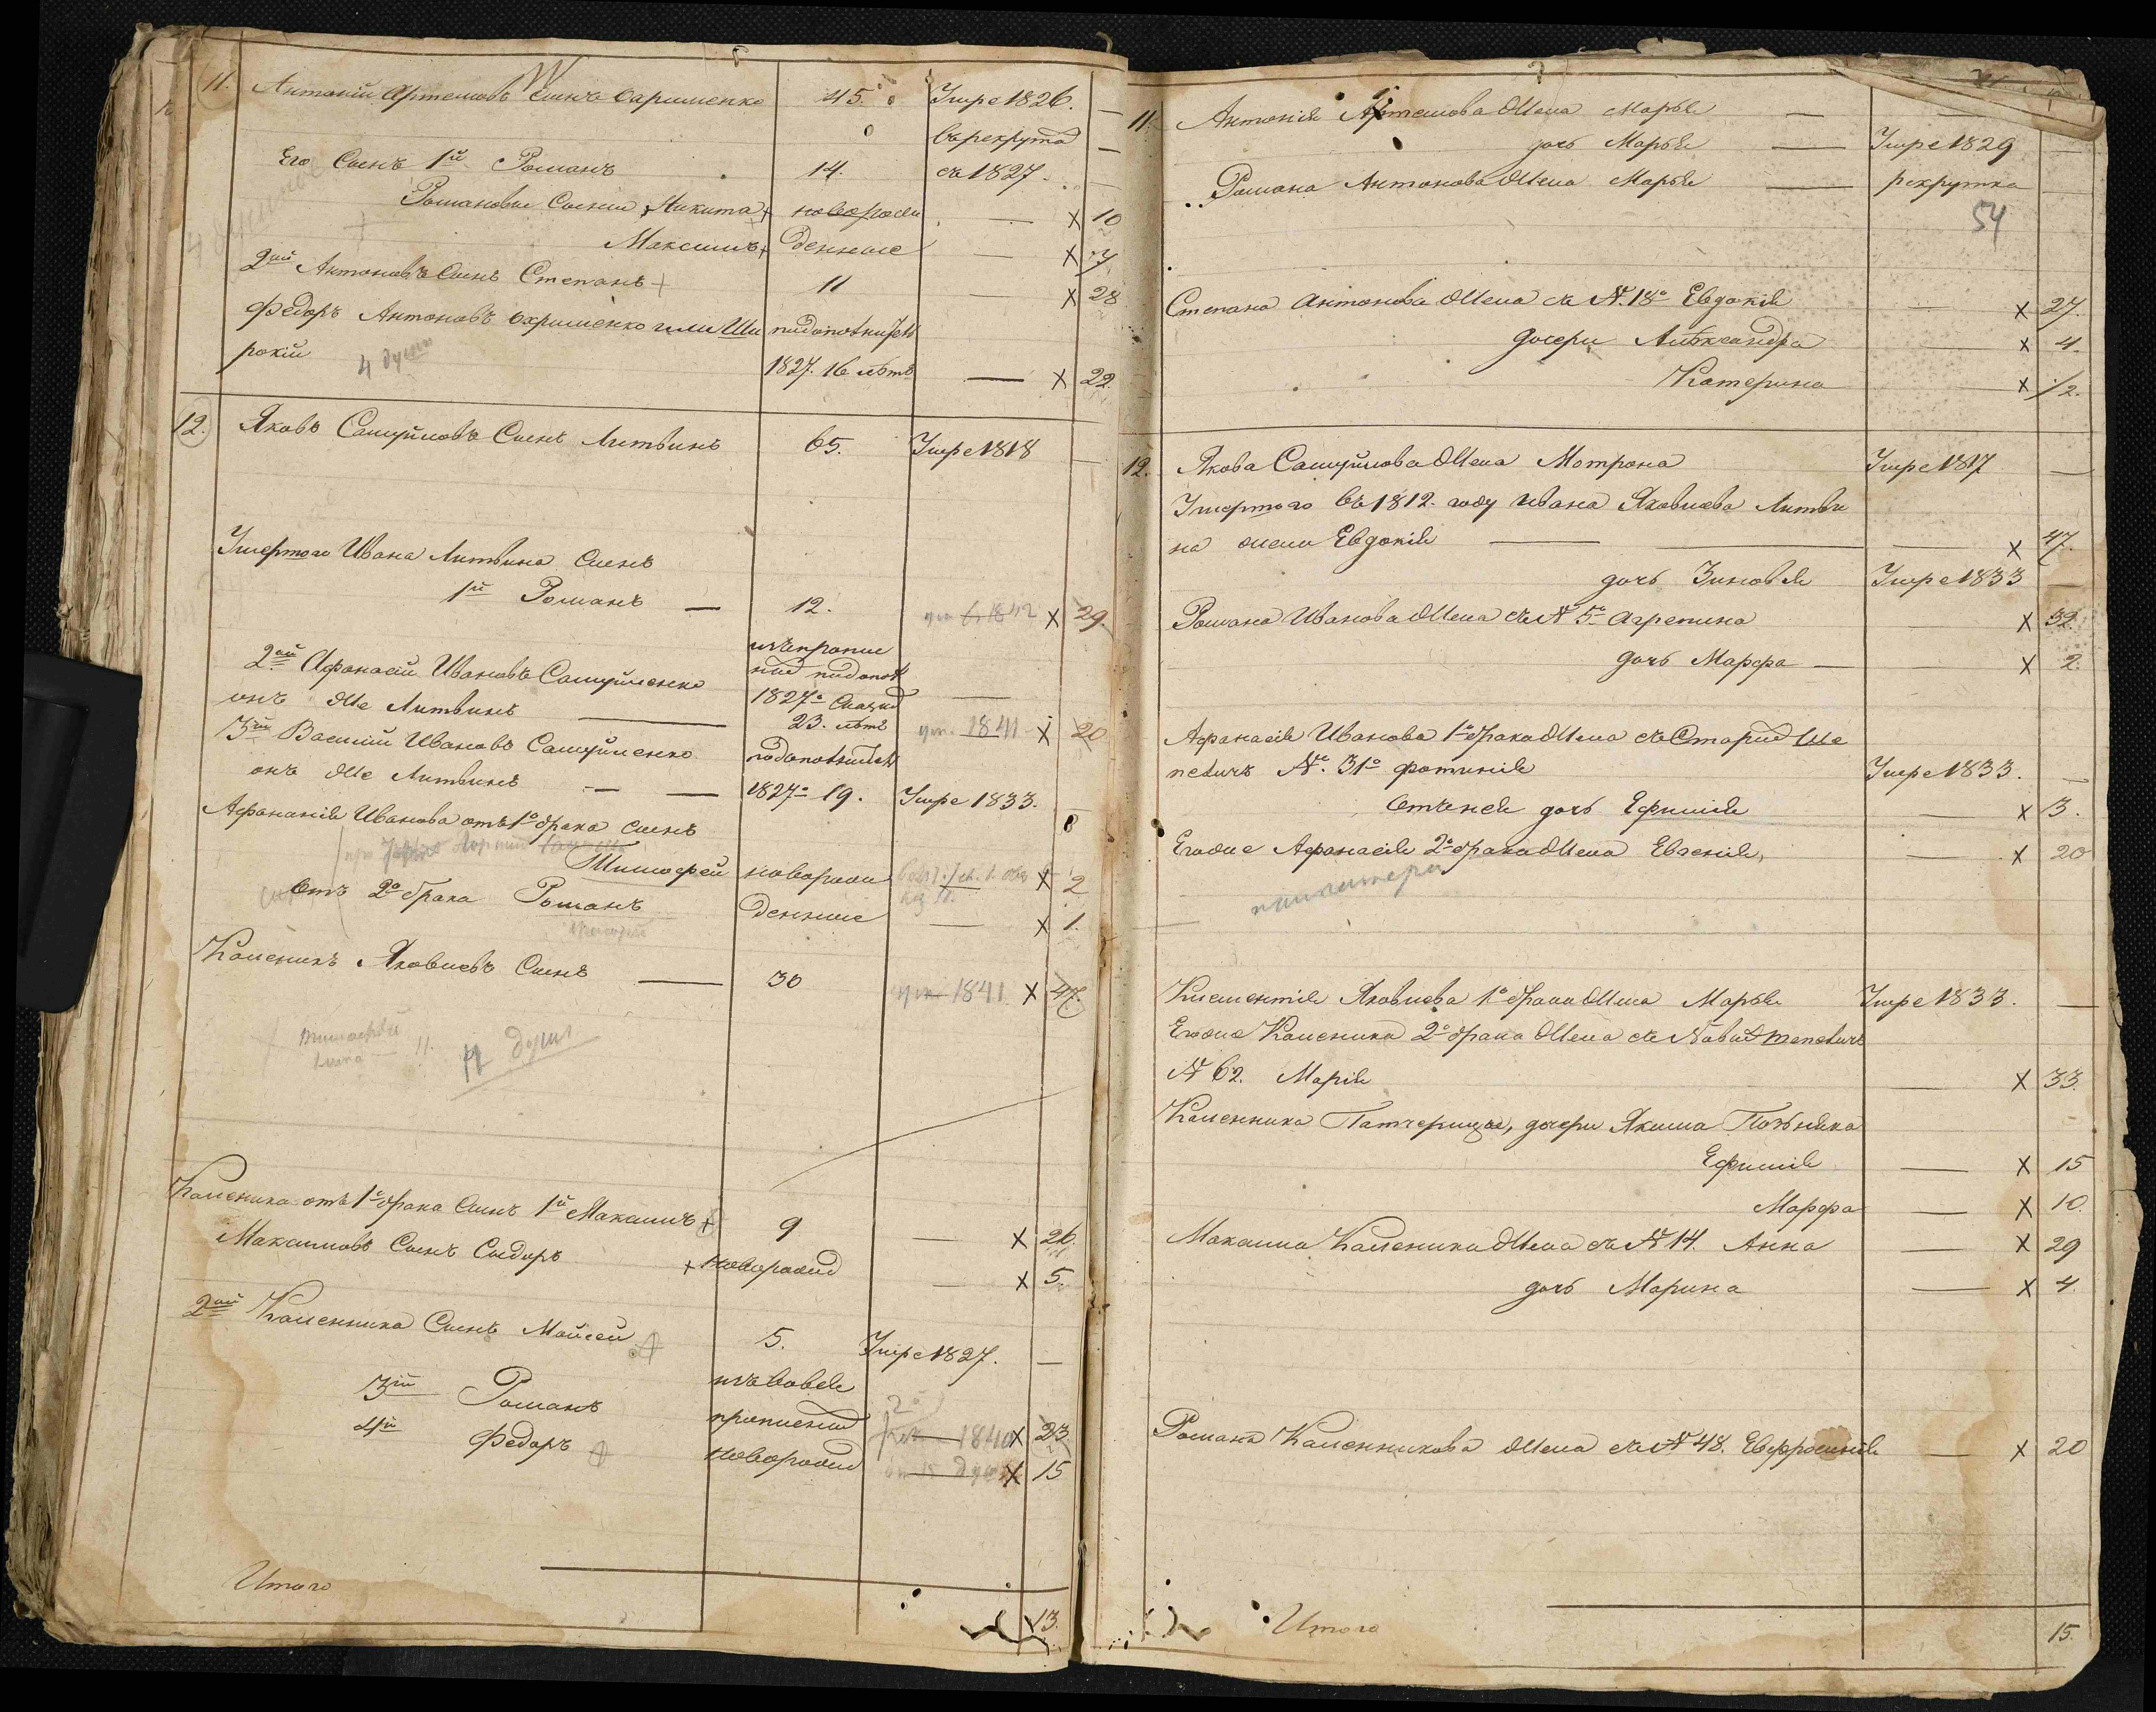 11. Антоній Артемовъ Сынъ 45. Умре 1826. —
въ рекрута —
Его Сынъ 1й Романъ 14. съ 1827. —
Романовы Сыни Никита новорож — х 10
Максимъ денные — х
2ой Антоновъ Сынъ Степанъ 11 — х 28
Федоръ Антоновъ Охрименко или Ши
рокій 1827. 16 летъ — х 22.
4 души
12. Яковъ Самуйловъ Сынъ Литвинъ 65. Умре 1818 —
Умертого Ивана Литвина Сынъ
1й Романъ — 12. 1842 х 29.
2ой Афанасій Ивановъ Самуйленко
онъ же Литвинъ — 1827о 23. летъ 1841 х 20
3й Василій Ивановъ Самуйленко
онъ же Литвинъ — — 1827о 19. Умре 1833. —
Афанасія Иванова отъ 1о брака Сынъ
Тимофей новорож х 2
Отъ 2о брака Романъ денные — х 1.
Каленикъ Яковлевъ Сынъ — 30 1841 х 47.
Тимофей
11. душъ
Каленика отъ 1о брака Сынъ 1й Максимъ 9 — х 26.
Максимовъ Сынъ Сидоръ новорожд — х 5.
2ой Каленника Сынъ Мойсей 5. Умре 1827. —
3й Романъ 1840 х 23
4й Федоръ новорожд х 15
Итого
13.
11. Антонія Артемова Жена Марья — —
дочь Марья — Умре 1829 —
Романа Антонова Жена Марья — рекрутка
54
Степана Антонова Жена съ №. 18о Евдокія — х 27.
дочери Александра — х 4.
Катерина — х 1/2.
12. Якова Самуйлова Жена Мотрона Умре 1817 —
Умертого въ 1812. году Ивана Яковлева Литви
на жена Евдокія — — — х 47.
дочь Зиновья Умре 1833 —
Романа Иванова Жена съ № 5о Агрепина — х 32.
дочь Марфа — — х 2.
Афанасія Иванова 1о брака Жена съ
№. 31о Фотинія Умре 1833. —
Отъ нея дочь Ефимія — х 3.
Егоже Афанасія 2о брака Жена Евгенія, — х 20
Клементія Яковлева 1о брака Жена Марья Умре 1833. —
Егоже Каленика 2о брака Жена съ
№ 62. Марія — х 33.
Каленника Патчерицы, дочери Якима
Ефимія — х 15
Марфа — х 10.
Максима Каленика Жена съ № 14. Анна — х 29
дочь Марина — х 4.
Романа Каленникова Жена съ № 48. Евфросинія — х 20
Итого
15.